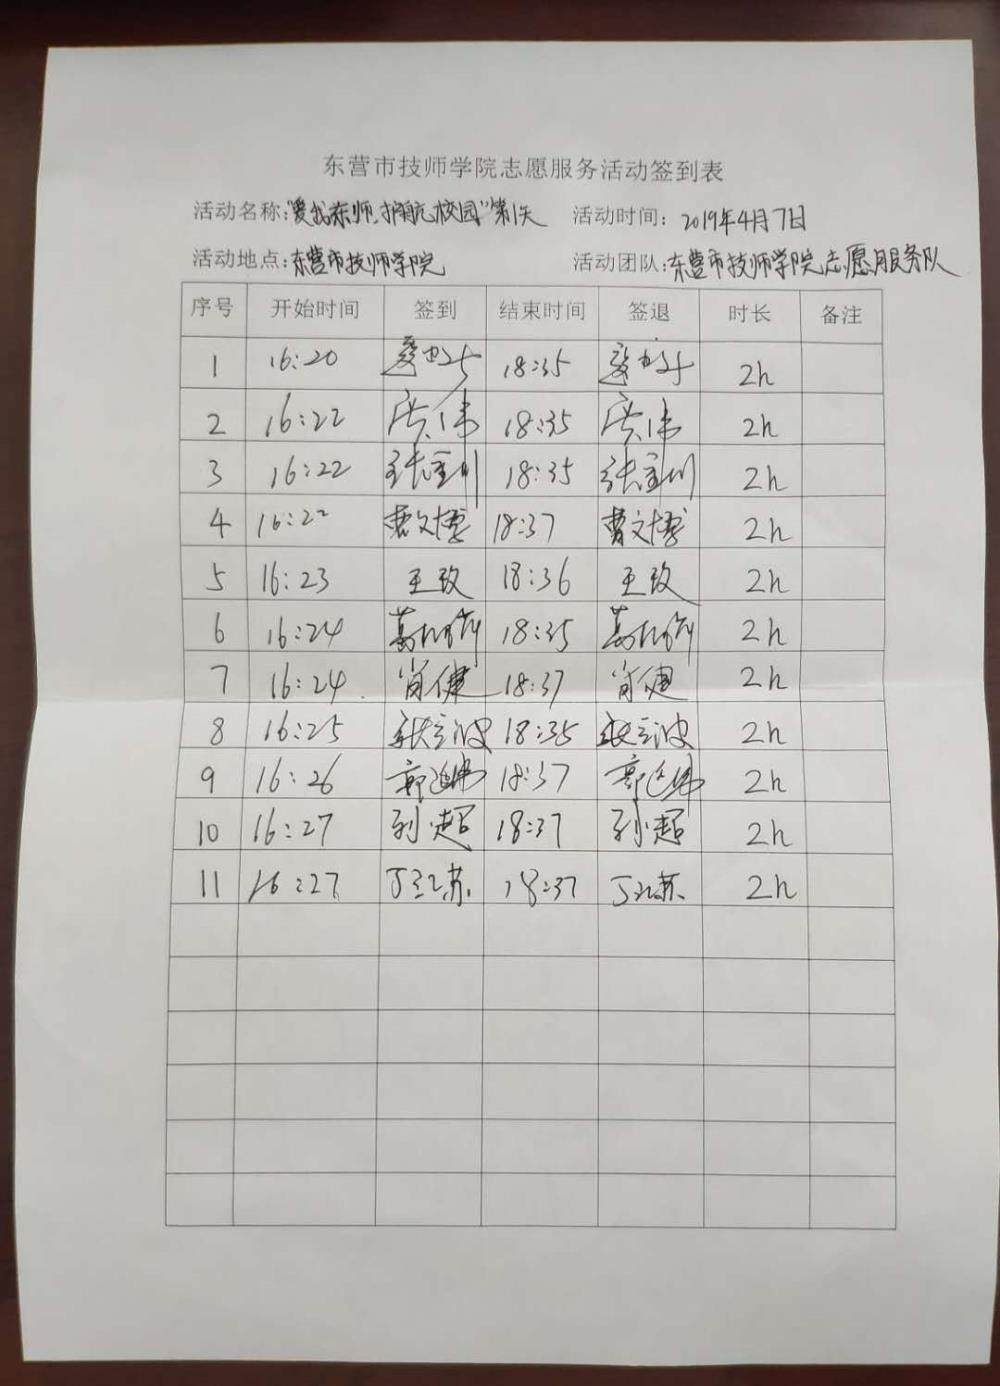 东营市技师学院志愿服务活动签到表
活动名称:"爱我东师,护航校园"第1天 活动时间: 2019年4月7日
活动地点:东营市技师学院 活动团队:东营市技师学院志愿服务队
序号 开始时间 签到 结束时间 签退 时长 备注
1 16:20 18:35 2h
2 16:22 18:35 2h
3 16:22 18:35 2h
4 16:22 曹文博 18:37 曹文博 2h
5 16:23 王玫 18:36 王玫 2h
6 16:24 18:35 2h
7 16:24 肖健 18:37 肖健 2h
8 16:25 18:35 2h
9 16:26 18:37 2h
10 16:27 孙超 18:37 孙超 2h
11 16:27 18:37 2h